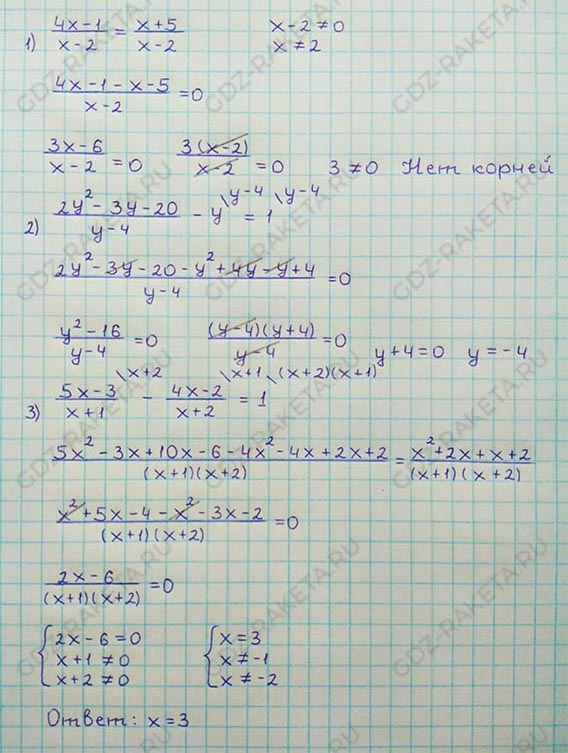 1) (4x-1)/(x-2) = (x+5)/(x-2)    x-2≠0
x≠2
(4x-1-x-5)/(x-2) = 0
(3x-6)/(x-2) = 0    3(x-2)/(x-2) = 0    3≠0 Нет корней
2) (2y²-3y-20)/(y-4) - y\y-4 = 1\y-4
(2y²-3y-20-y²+4y-y+4)/(y-4) = 0
(y²-16)/(y-4) = 0    (y-4)(y+4)/(y-4) = 0    y+4=0    y=-4
3) (5x-3)/(x+1)\x+2 - (4x-2)/(x+2)\x+1 = 1\(x+2)(x+1)
(5x²-3x+10x-6-4x²-4x+2x+2)/((x+1)(x+2)) = (x²+2x+x+2)/((x+1)(x+2))
(x²+5x-4-x²-3x-2)/((x+1)(x+2)) = 0
(2x-6)/((x+1)(x+2)) = 0
{ 2x-6=0    { x=3
x+1≠0    x≠-1
x+2≠0    x≠-2
Ответ: x=3
GDZ-RAKETA.RU